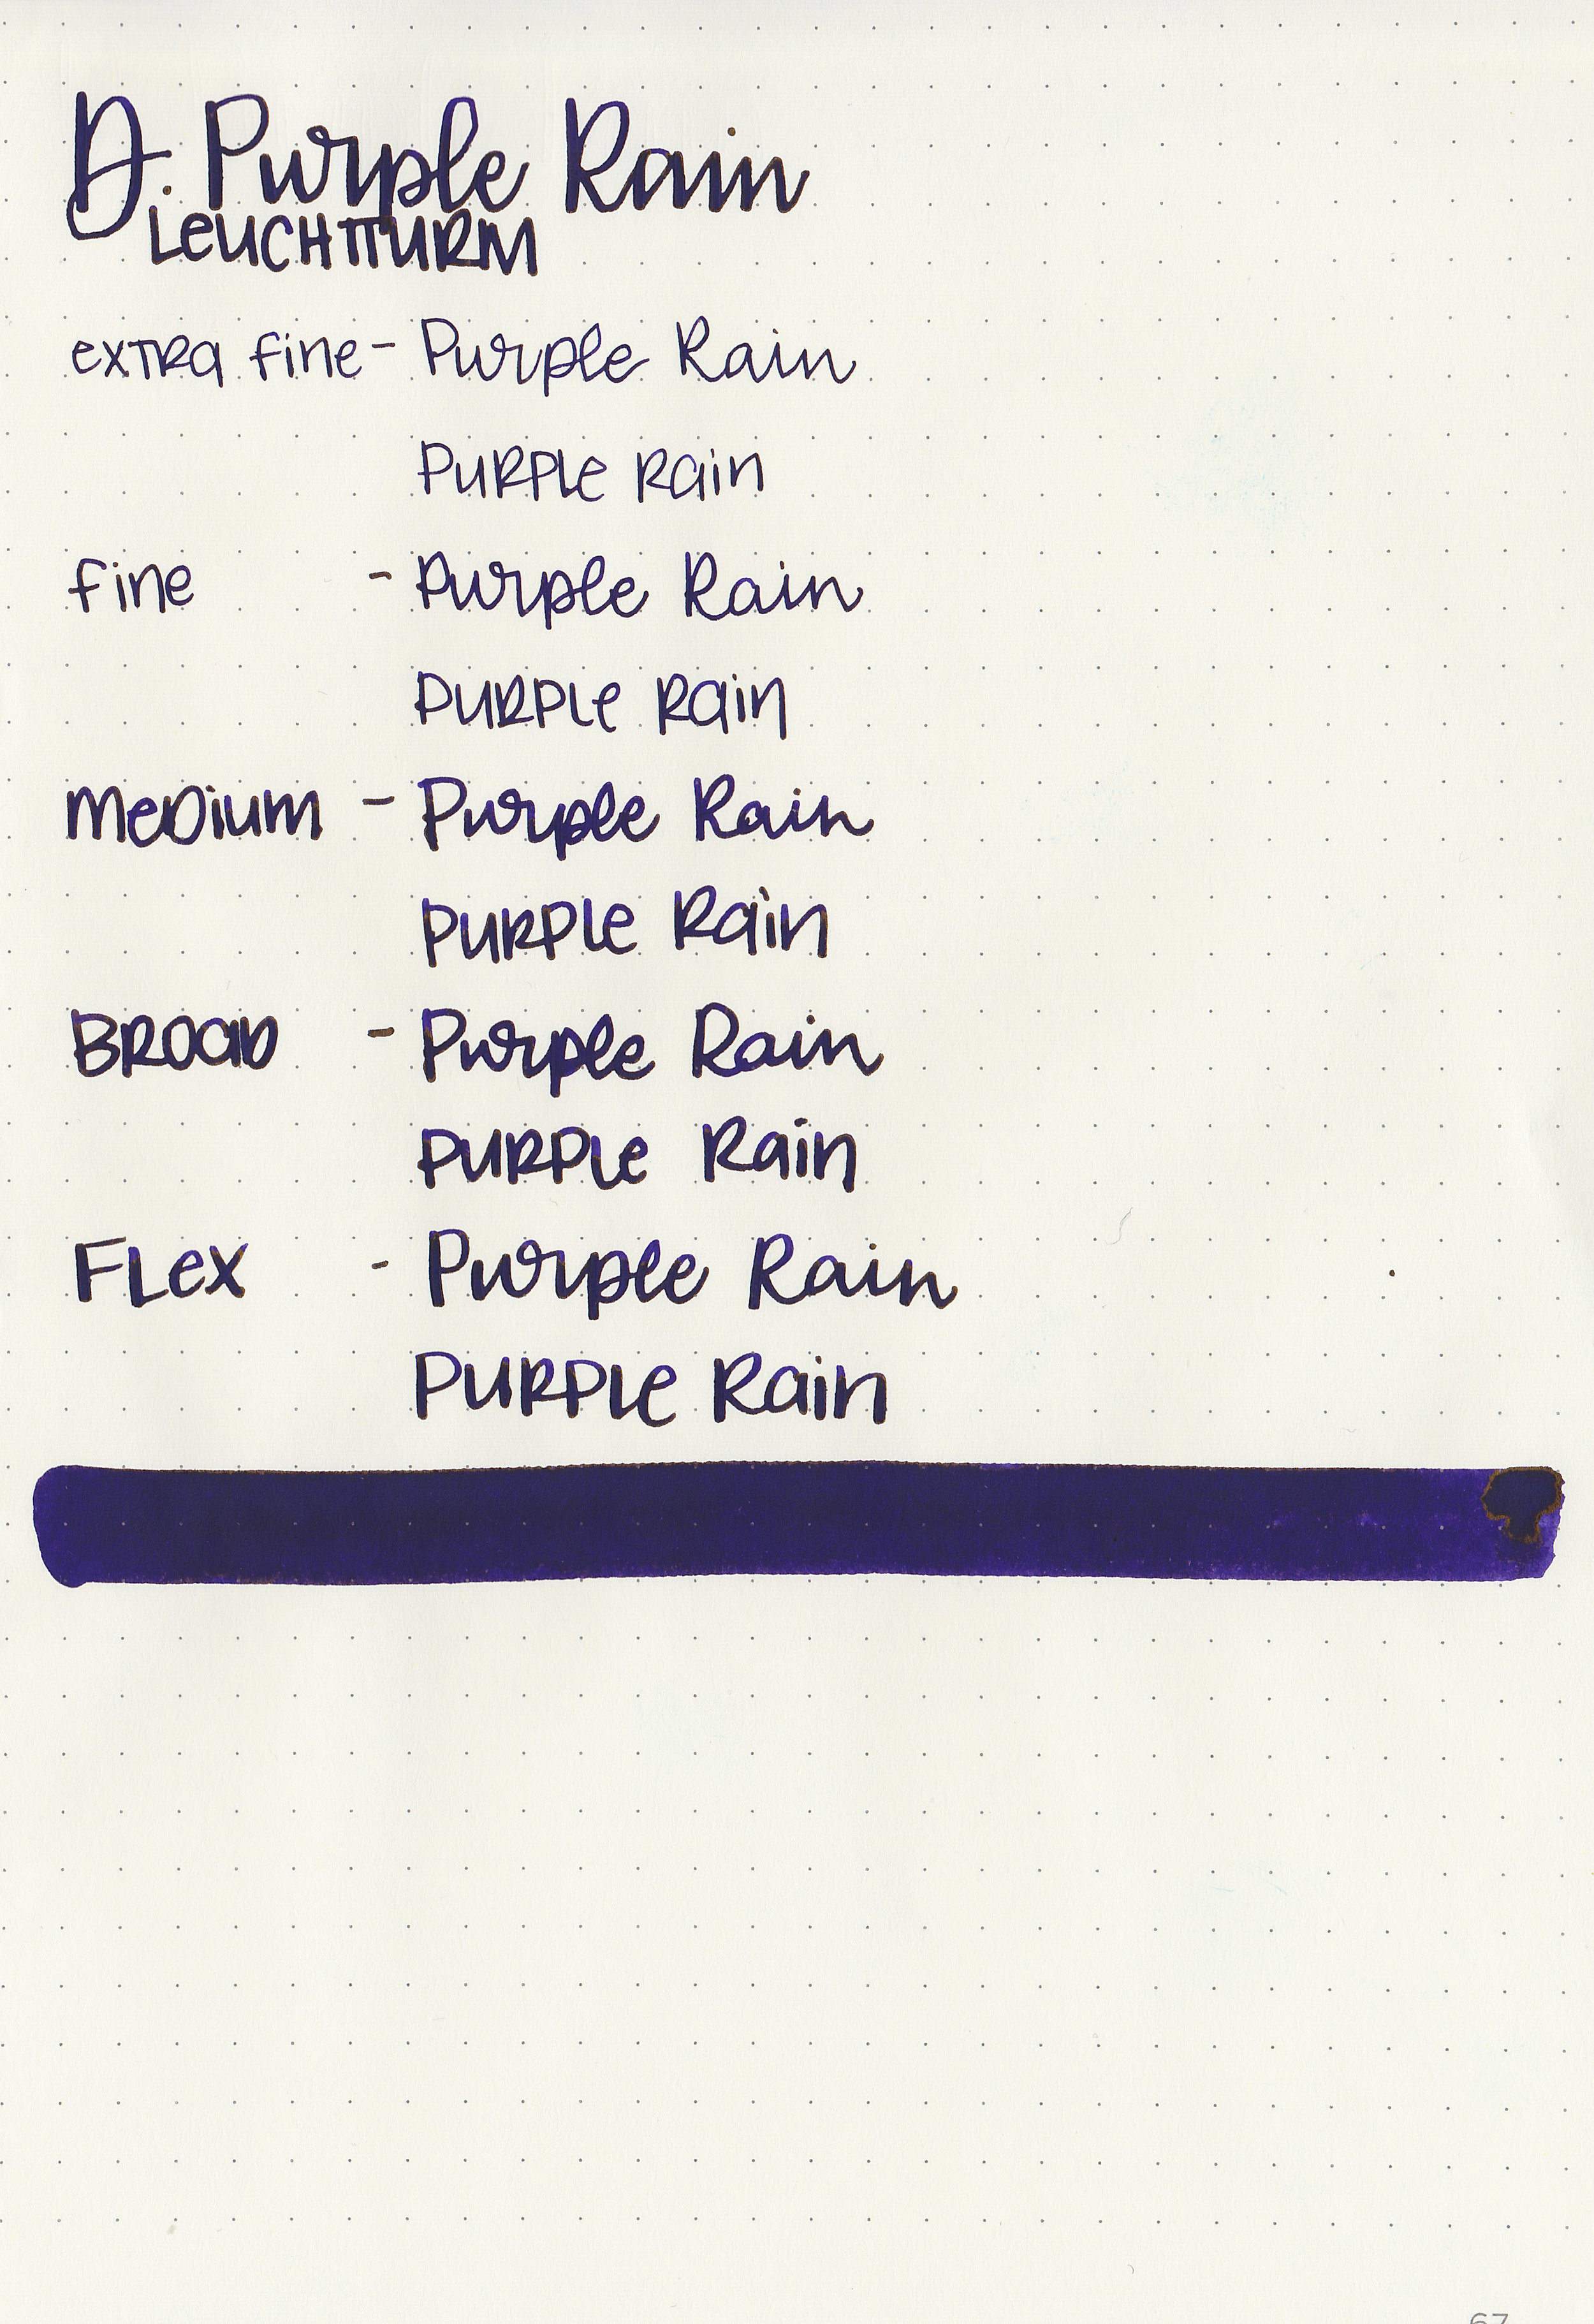 D. Purple Rain
LeUCHTTURM
exTRa fine - Purple Rain
PURPLe Rain
fine - Purple Rain
PURPLe Rain
MeDium - Purple Rain
PURPLe Rain
BROaD - Purple Rain
PURPLe Rain
FLex - Purple Rain
PURPLe Rain
67